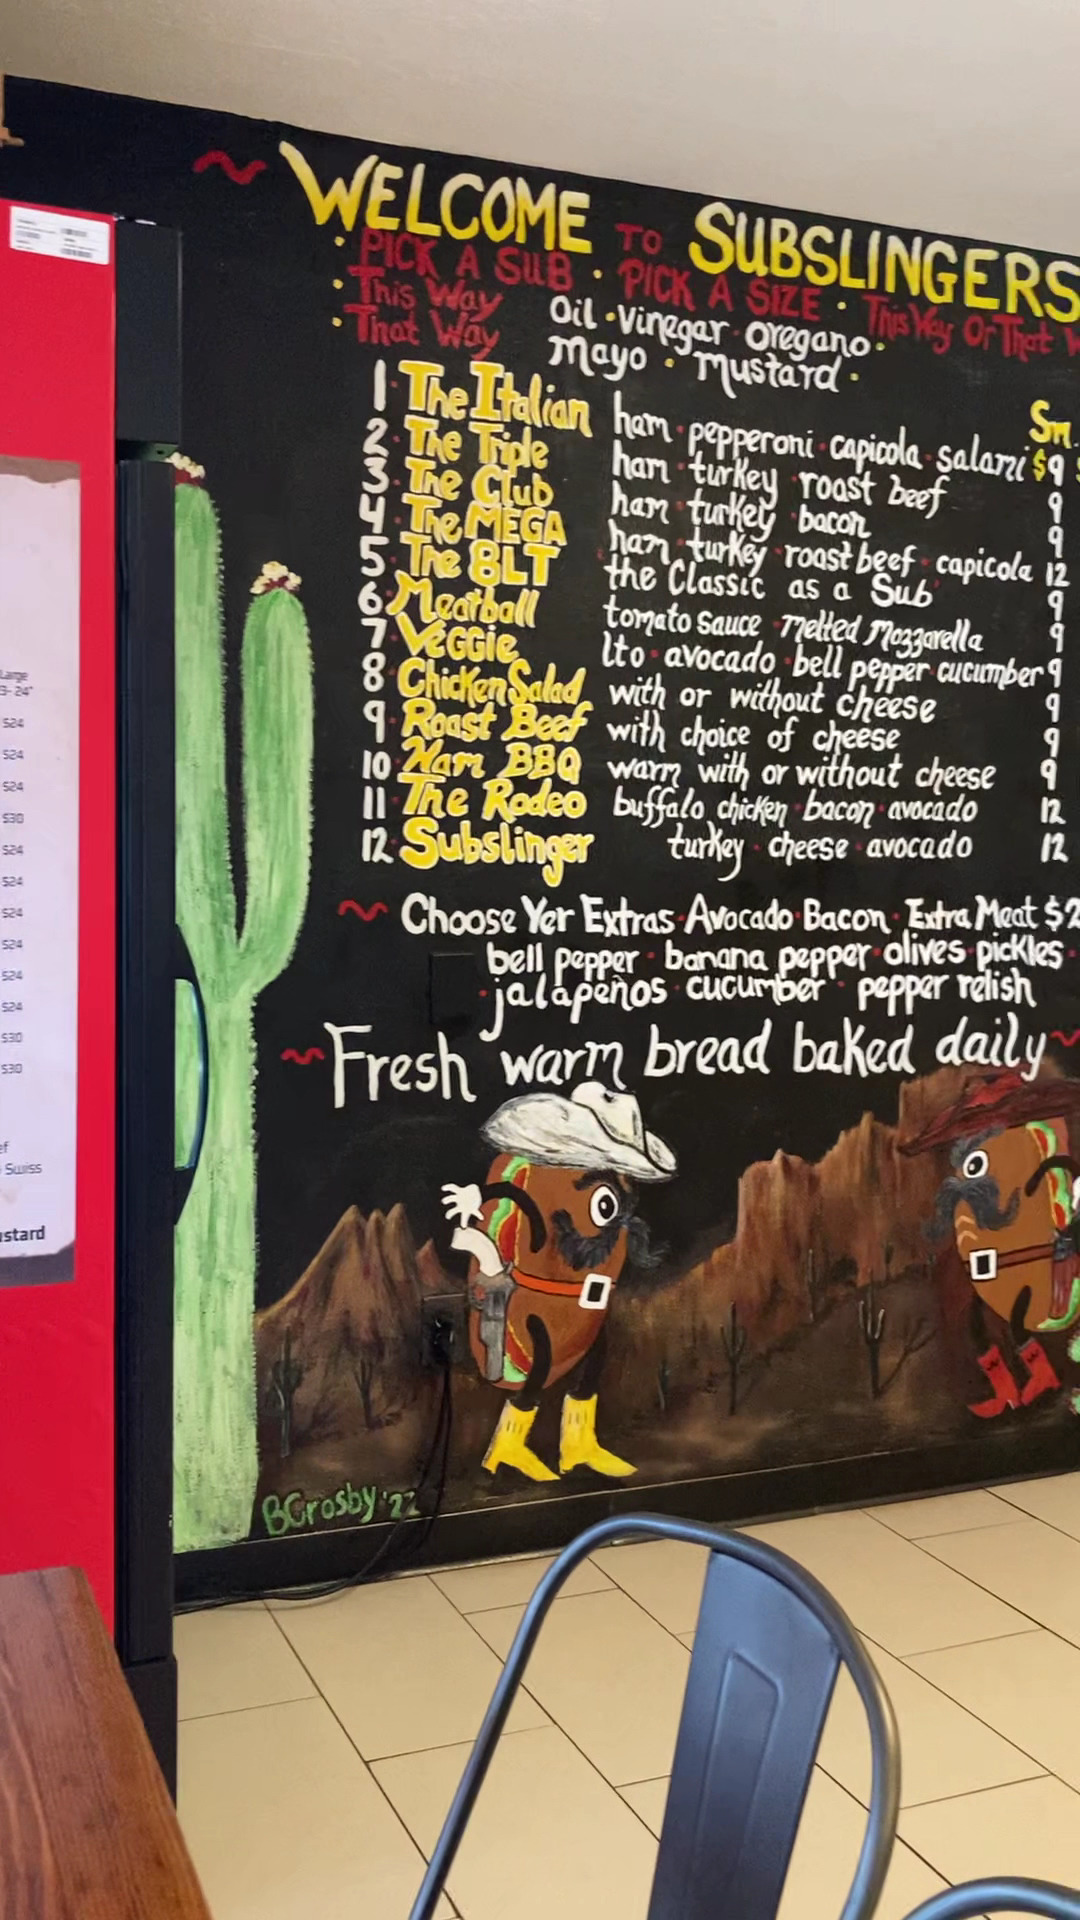 WELCOME TO SUBSLINGERS
· PICK A SUB · PICK A SIZE · This Way Or That W
· This Way
· That Way
Oil · Vinegar · Oregano ·
Mayo · Mustard ·
Sm.
1 The Italian ham · pepperoni · capicola · salami $9
2 The Triple ham · turkey · roast beef 9
3 The Club ham · turkey · bacon 9
4 The MEGA ham · turkey · roast beef · capicola 12
5 The BLT the Classic as a Sub 9
6 Meatball tomato sauce · melted Mozzarella 9
7 Veggie lto · avocado · bell pepper cucumber 9
8 Chicken Salad with or without cheese 9
9 Roast Beef with choice of cheese 9
10 Ham BBQ warm with or without cheese 9
11 The Rodeo buffalo chicken · bacon · avocado 12
12 Subslinger turkey · cheese · avocado 12
~ Choose Yer Extras · Avocado · Bacon · Extra Meat $2
bell pepper · banana pepper · olives pickles ·
· jalapeños · cucumber · pepper relish
~ Fresh warm bread baked daily ~
BCrosby '22
Large
3- 24"
S24
S24
S24
S30
S24
S24
S24
S24
S24
S24
S30
S30
ef
Swiss
stard